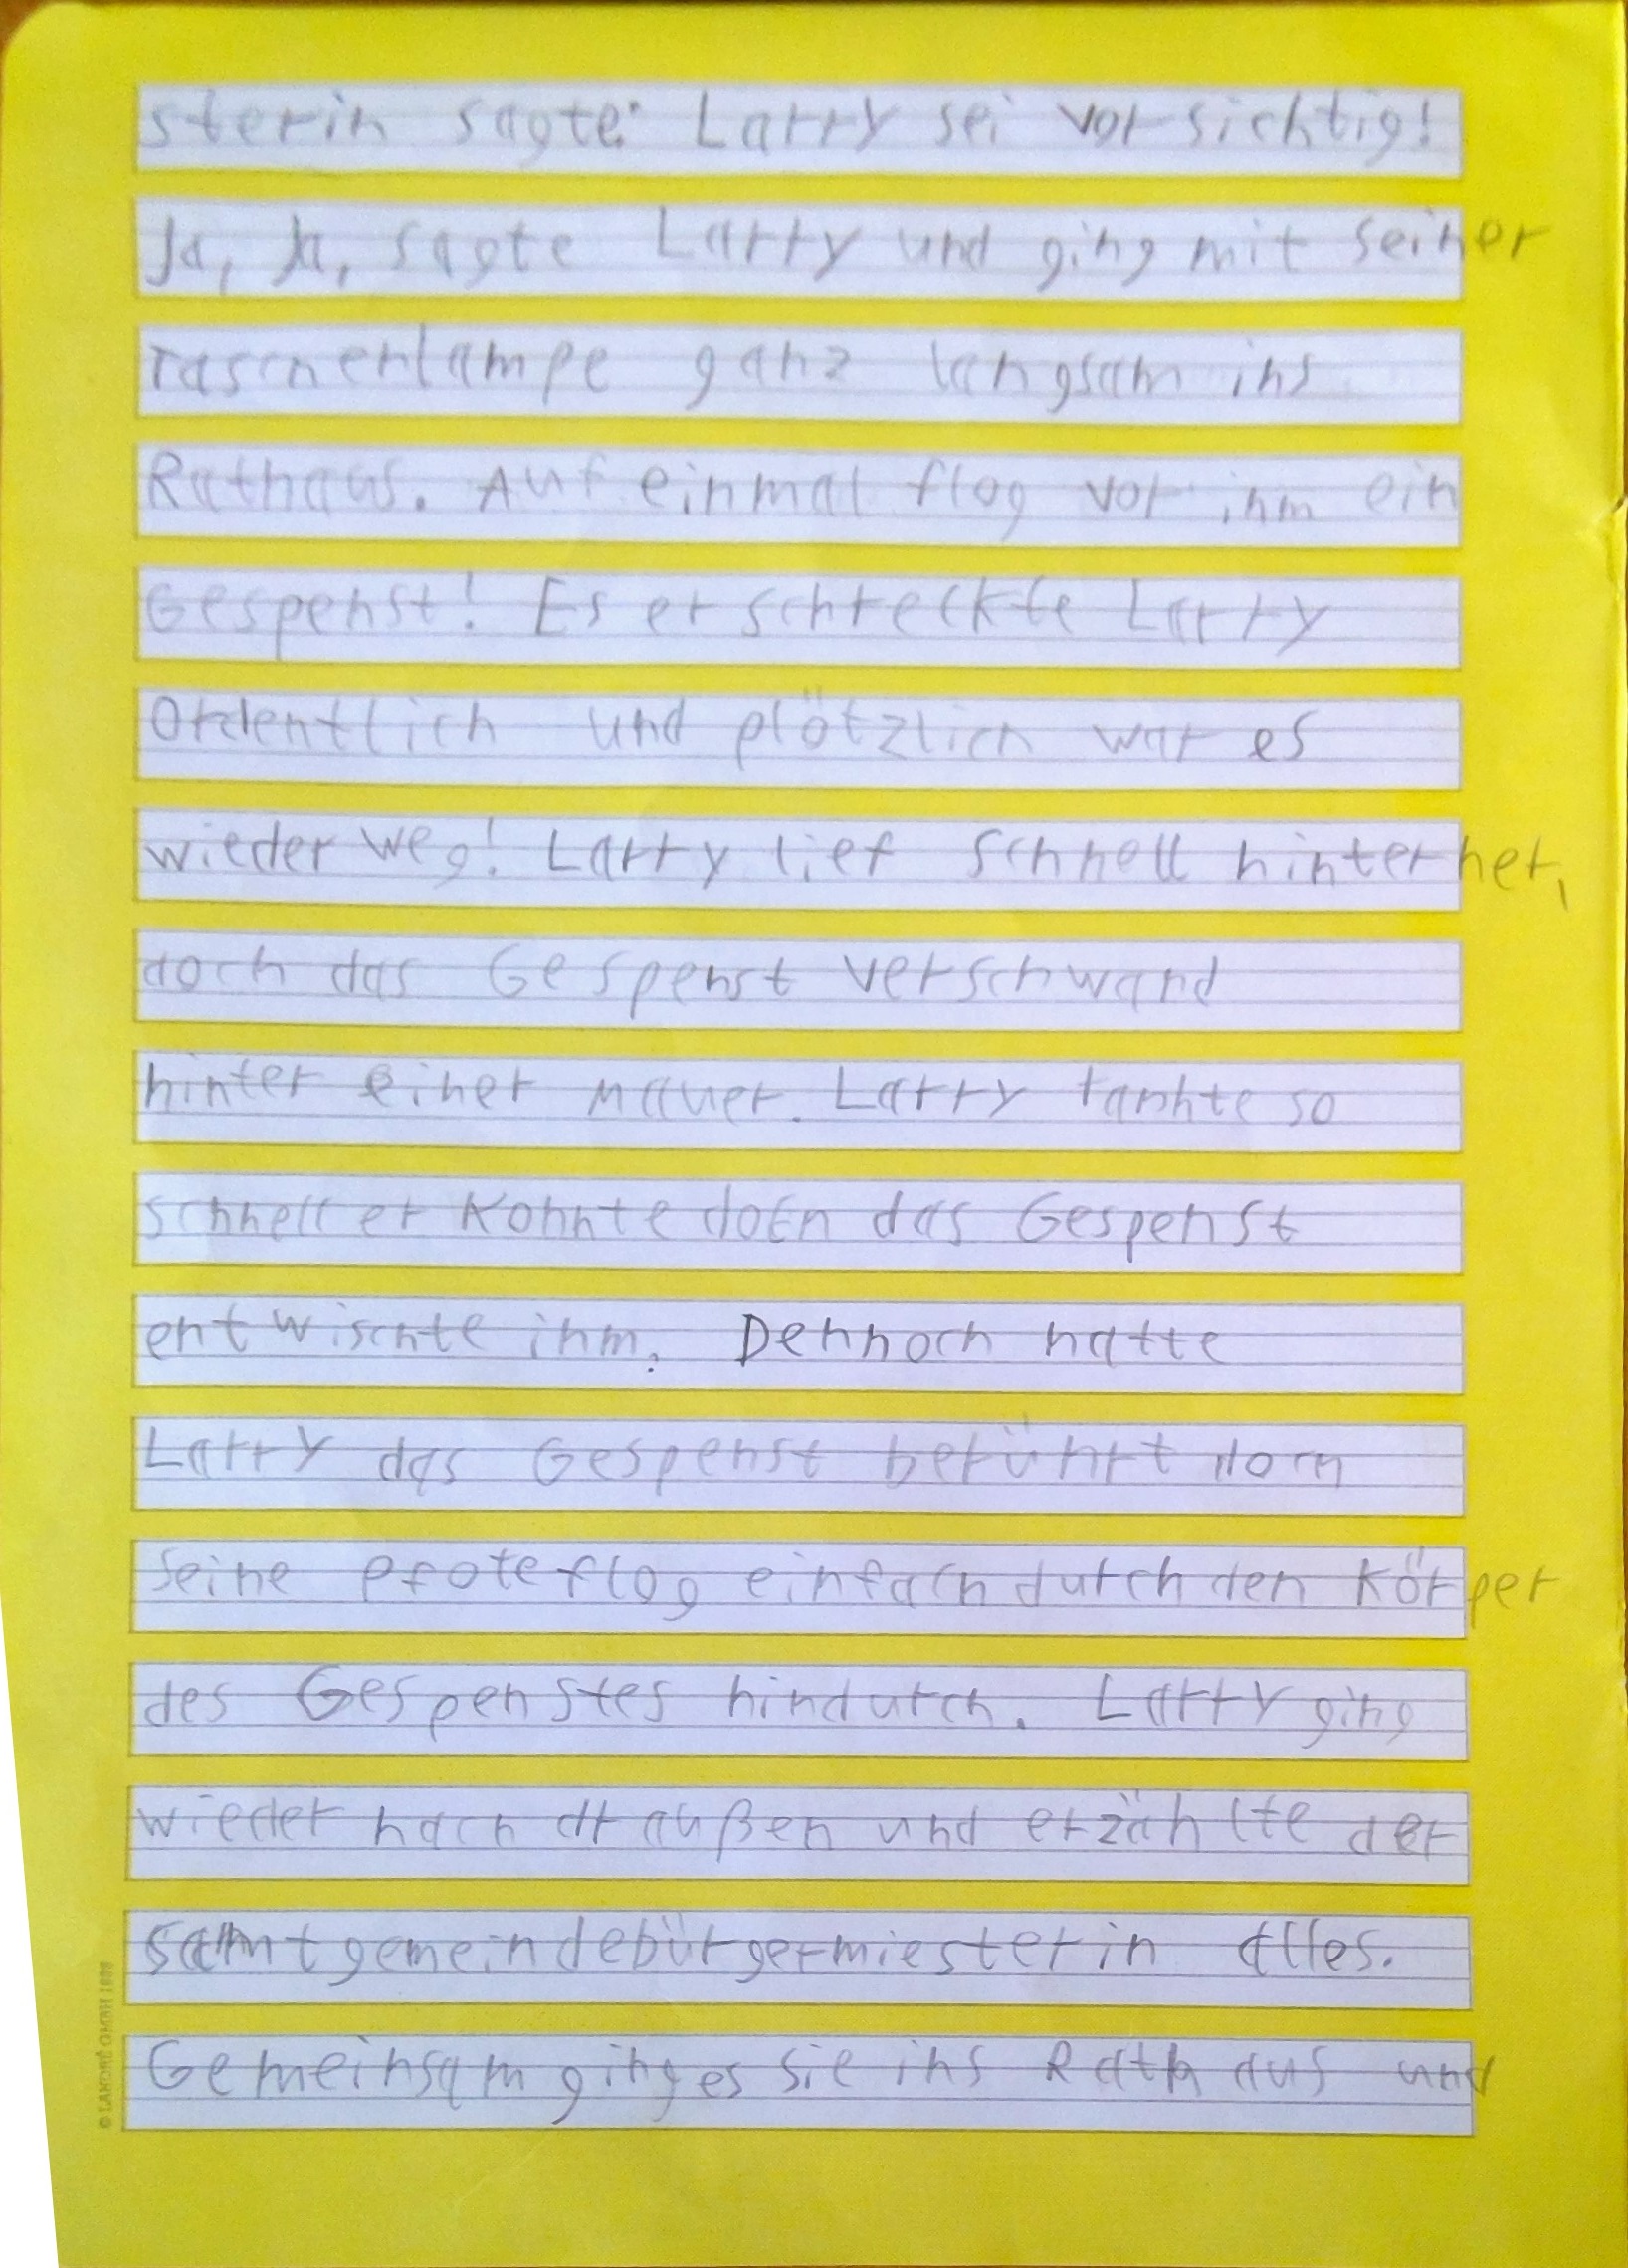 sterin sagte: Larry sei vorsichtig!
Ja, Ja, sagte Larry und ging mit seiner
Taschenlampe ganz langsam ins
Rathaus. Auf einmal flog vor ihm ein
Gespenst! Es erschreckte Larry
Ordentlich und plötzlich war es
wieder weg! Larry lief schnell hinterher,
doch das Gespenst verschwand
hinter einer Mauer. Larry rannte so
schnell er konnte doch das Gespenst
entwischte ihm. Dennoch hatte
Larry das Gespenst berührt doch
seine Pfote flog einfach durch den Körper
des Gespenstes hindurch. Larry ging
wieder nach draußen und erzählte der
Samtgemeindebürgermiesterin alles.
Gemeinsam ginges sie ins Rathaus und
© LANDRÉ GMBH 1999